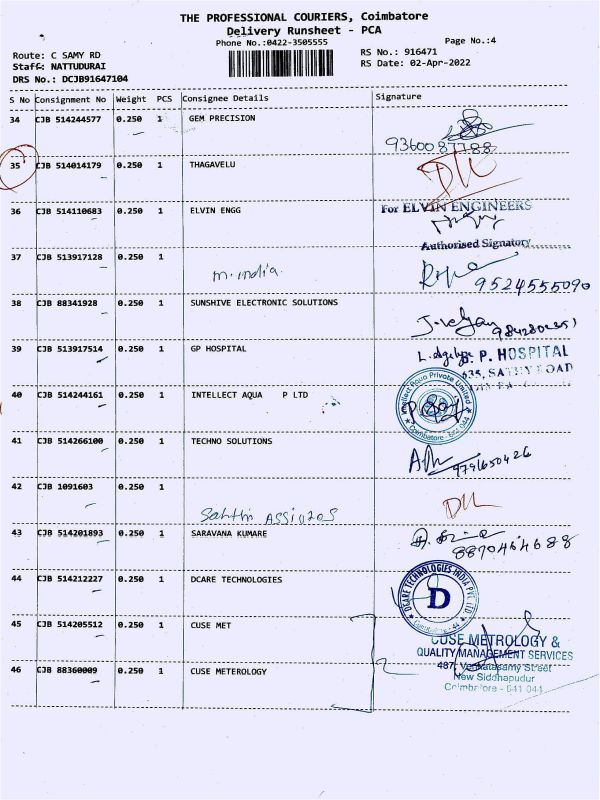 THE PROFESSIONAL COURIERS, Coimbatore
Delivery Runsheet - PCA
Phone No.:0422-3505555
Page No.:4
Route: C SAMY RD
RS No.: 916471
Staff: NATTUDURAI
RS Date: 02-Apr-2022
DRS No.: DCJB91647104
S No Consignment No Weight PCS Consignee Details Signature
34 CJB 514244577 0.250 1 GEM PRECISION
35 CJB 514014179 0.250 1 THAGAVELU
36 CJB 514110683 0.250 1 ELVIN ENGG For ELVIN ENGINEERS
Authorised Signatory
37 CJB 513917128 0.250 1
m.india.
9524555090
38 CJB 88341928 0.250 1 SUNSHIVE ELECTRONIC SOLUTIONS
39 CJB 513917514 0.250 1 GP HOSPITAL
P. HOSPITAL
635, SATHY ROAD
40 CJB 514244161 0.250 1 INTELLECT AQUA P LTD
Intellect Aqua Private Limited
Coimbatore - 641 044
41 CJB 514266100 0.250 1 TECHNO SOLUTIONS
9791650426
42 CJB 1091603 0.250 1
43 CJB 514201893 0.250 1 SARAVANA KUMARE
8870464688
44 CJB 514212227 0.250 1 DCARE TECHNOLOGIES
DCARE TECHNOLOGIES INDIA PVT. LTD.
D
45 CJB 514205512 0.250 1 CUSE MET
CUSE METROLOGY &
QUALITY MANAGEMENT SERVICES
46 CJB 88360009 0.250 1 CUSE METEROLOGY
487, Venkatasamy Street
New Siddhapudur
Coimbatore - 641 044